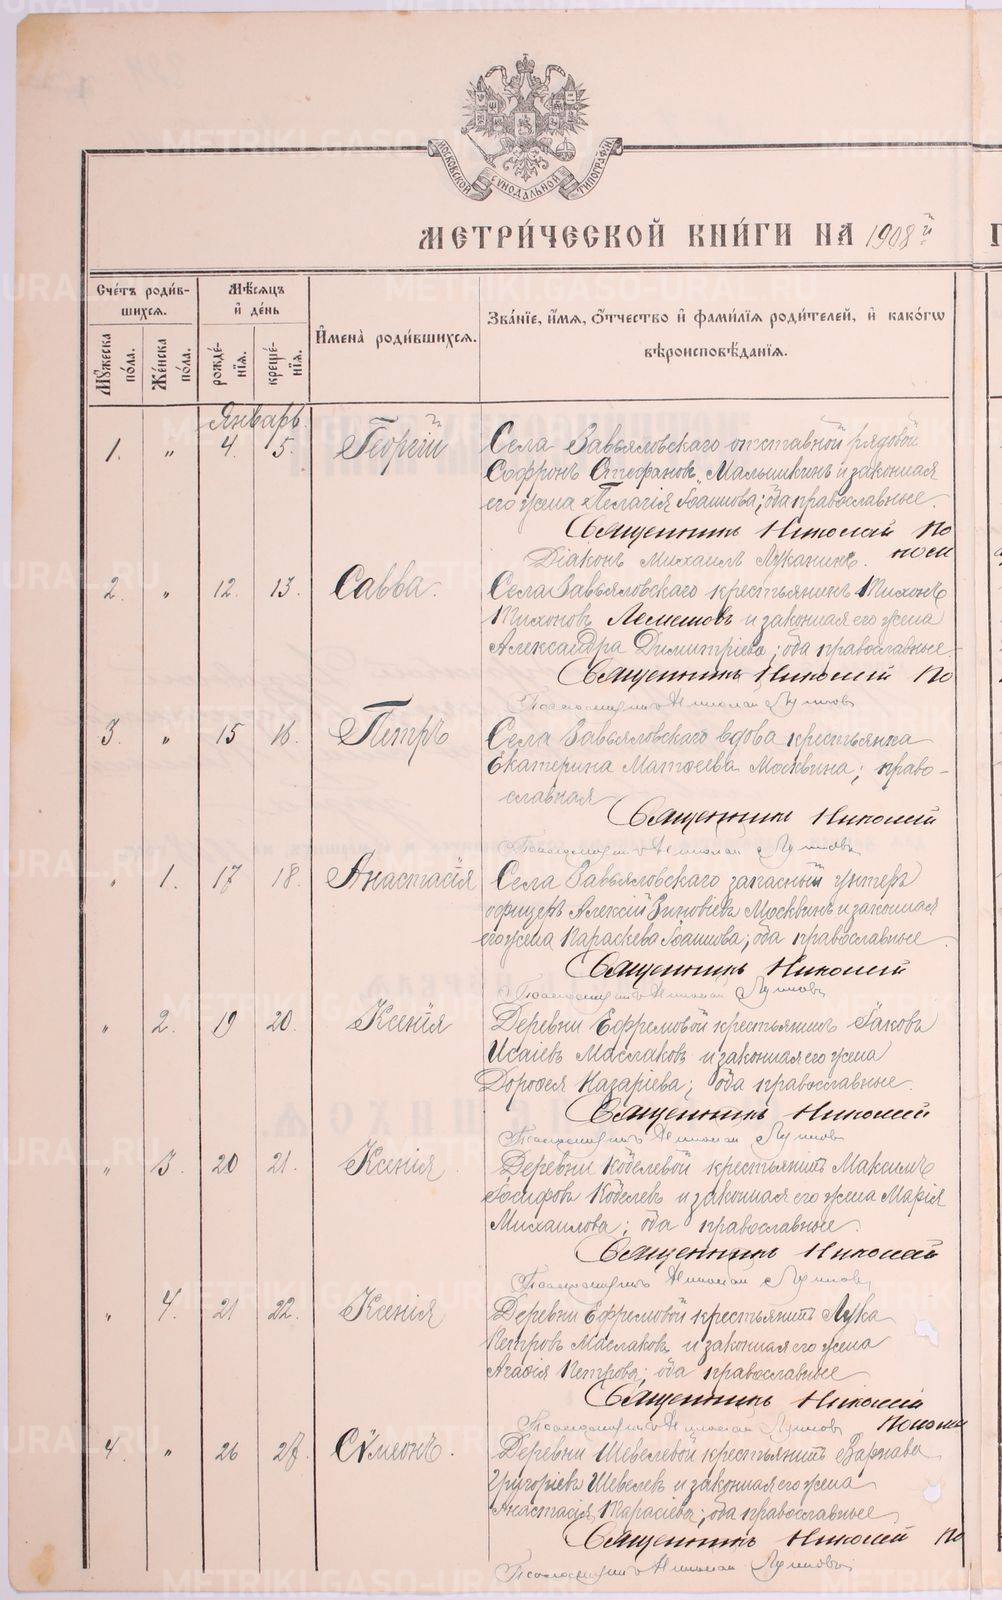 МОСКОВСКОЙ СУНОДАЛЬНОЙ ТИПОГРАФІИ
МЕТРИ́ЧЕСКОЙ КНИ́ГИ НА 1908й
Сче́тъ роди́в-
шихся.
Мѣ́сяцъ
и҆ де́нь
И҆мена̀ роди́вшихся.
Зва́нїе, и҆́мя, ѻ҆́тчество и҆ фами́лїя роди́телей, и҆ како́гѡ
вѣроисповѣ́данїя.
Мꙋ́жеска по́ла.
Же́нска по́ла.
рожде́-
нїя.
креще́-
нїя.
Январь
1. " 4. 5. Георгій
Села Завьяловскаго отставной рядовой
Софронъ Стефановъ Малышкинъ и законная
его жена Пелагія Іоаннова; оба православные.
Священникъ Николай По
Діаконъ Михаилъ Луканинъ.
2. " 12. 13. Савва.
Села Завьяловскаго крестьянинъ Тихонъ
Тихоновъ Лемешовъ и законная его жена
Александра Димитріева; оба православные.
Священникъ Николай По
Псаломщикъ Николай
3. " 15 16. Петръ
Села Завьяловскаго вдова крестьянка
Екатерина Матѳеева Москвина; право-
славная
Священникъ Николай
Псаломщикъ Николай
" 1. 17 18. Анастасія
Села Завьяловскаго запасный унтеръ
офицеръ Алексій Зиновіевъ Москвинъ и законная
его жена Параскева Іоаннова; оба православные.
Священникъ Николай
Псаломщикъ Николай
" 2. 19 20. Ксенія
Деревни Ефремовой крестьянинъ Іаковъ
Исаіевъ Маслаковъ и законная его жена
Дороѳея Назаріева; оба православные.
Священникъ Николай
Псаломщикъ Николай
" 3. 20 21. Ксенія
Деревни Кобелевой крестьянинъ Максимъ
Іосифовъ Кобелевъ и законная его жена Марія
Михаилова; оба православные.
Священникъ Николай
Псаломщикъ Николай
" 4. 21 22. Ксенія
Деревни Ефремовой крестьянинъ Лука
Петровъ Маслаковъ и законная его жена
Агафія Петрова; оба православные
Священникъ Николай
Псаломщикъ Николай
4. " 26 27. Сѵмеонъ.
Деревни Шевелевой крестьянинъ Варнава
Григоріевъ Шевелевъ и законная его жена
Анастасія Тарасіева; оба православные
Священникъ Николай По
Псаломщикъ Николай
METRIKI.GASO-URAL.RU